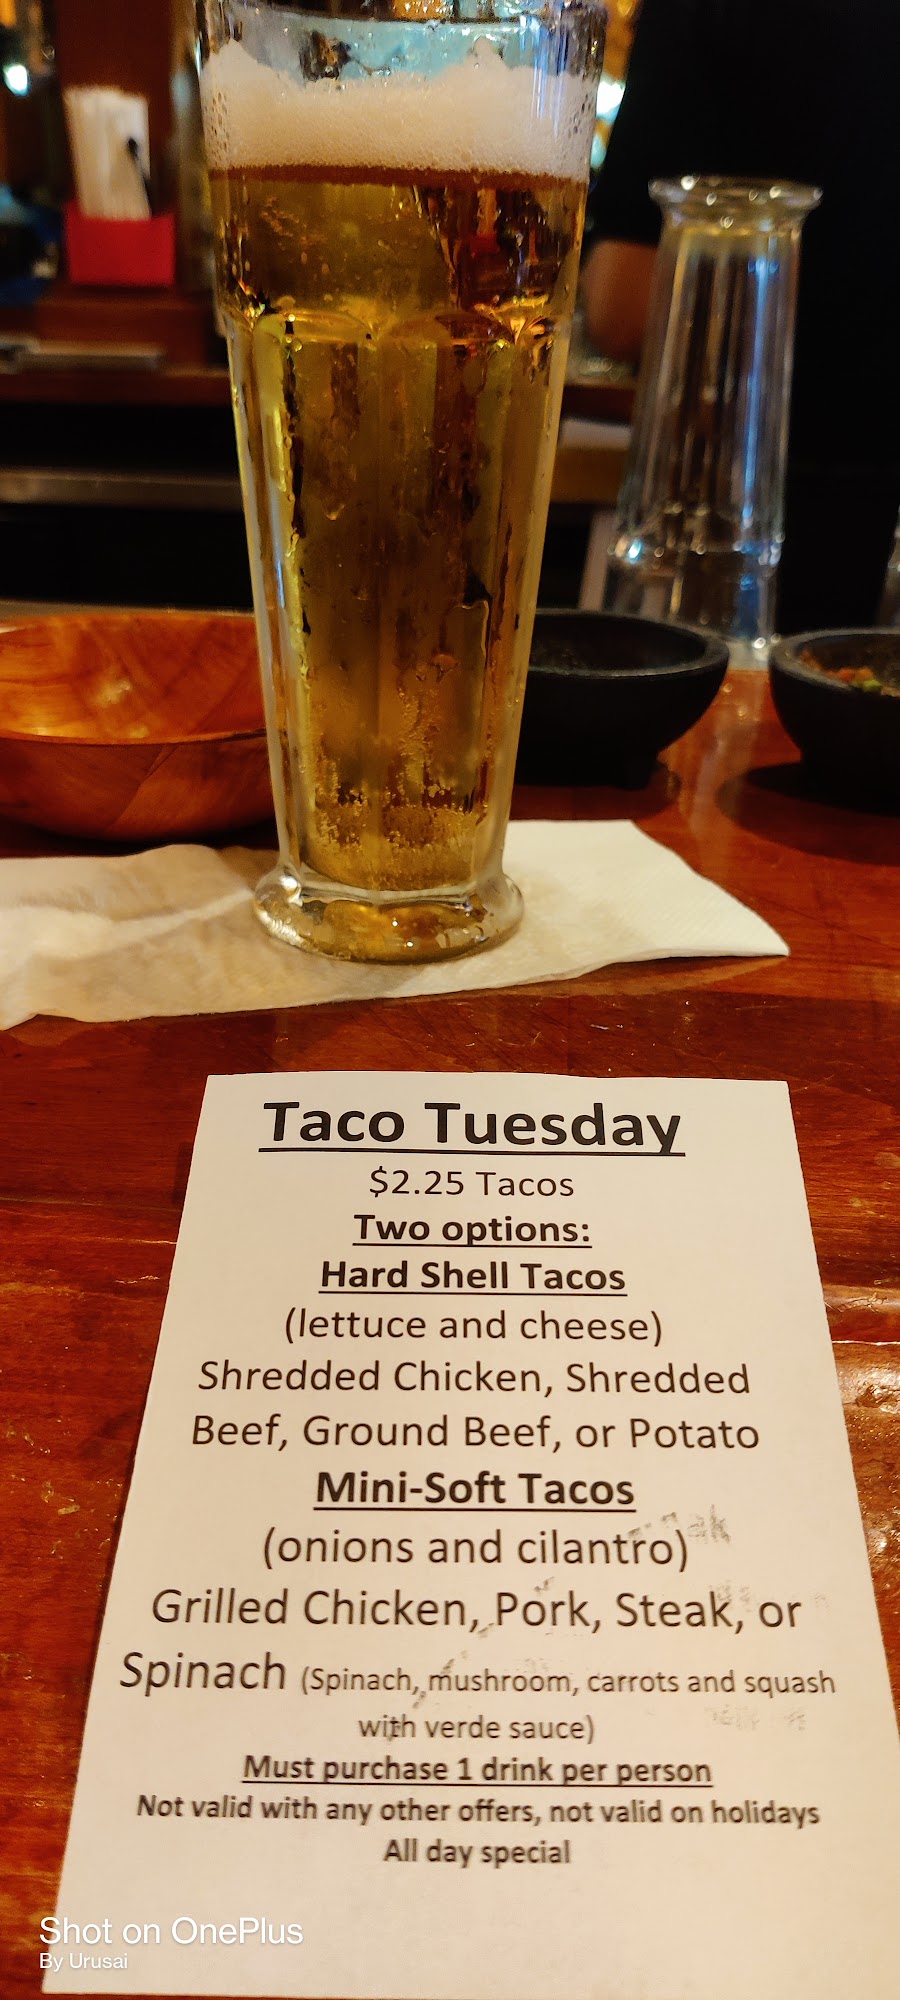 Taco Tuesday
$2.25 Tacos
Two options:
Hard Shell Tacos
(lettuce and cheese)
Shredded Chicken, Shredded
Beef, Ground Beef, or Potato
Mini-Soft Tacos
(onions and cilantro)
Grilled Chicken, Pork, Steak, or
Spinach (Spinach, mushroom, carrots and squash
with verde sauce)
Must purchase 1 drink per person
Not valid with any other offers, not valid on holidays
All day special
Shot on OnePlus
By Urusai